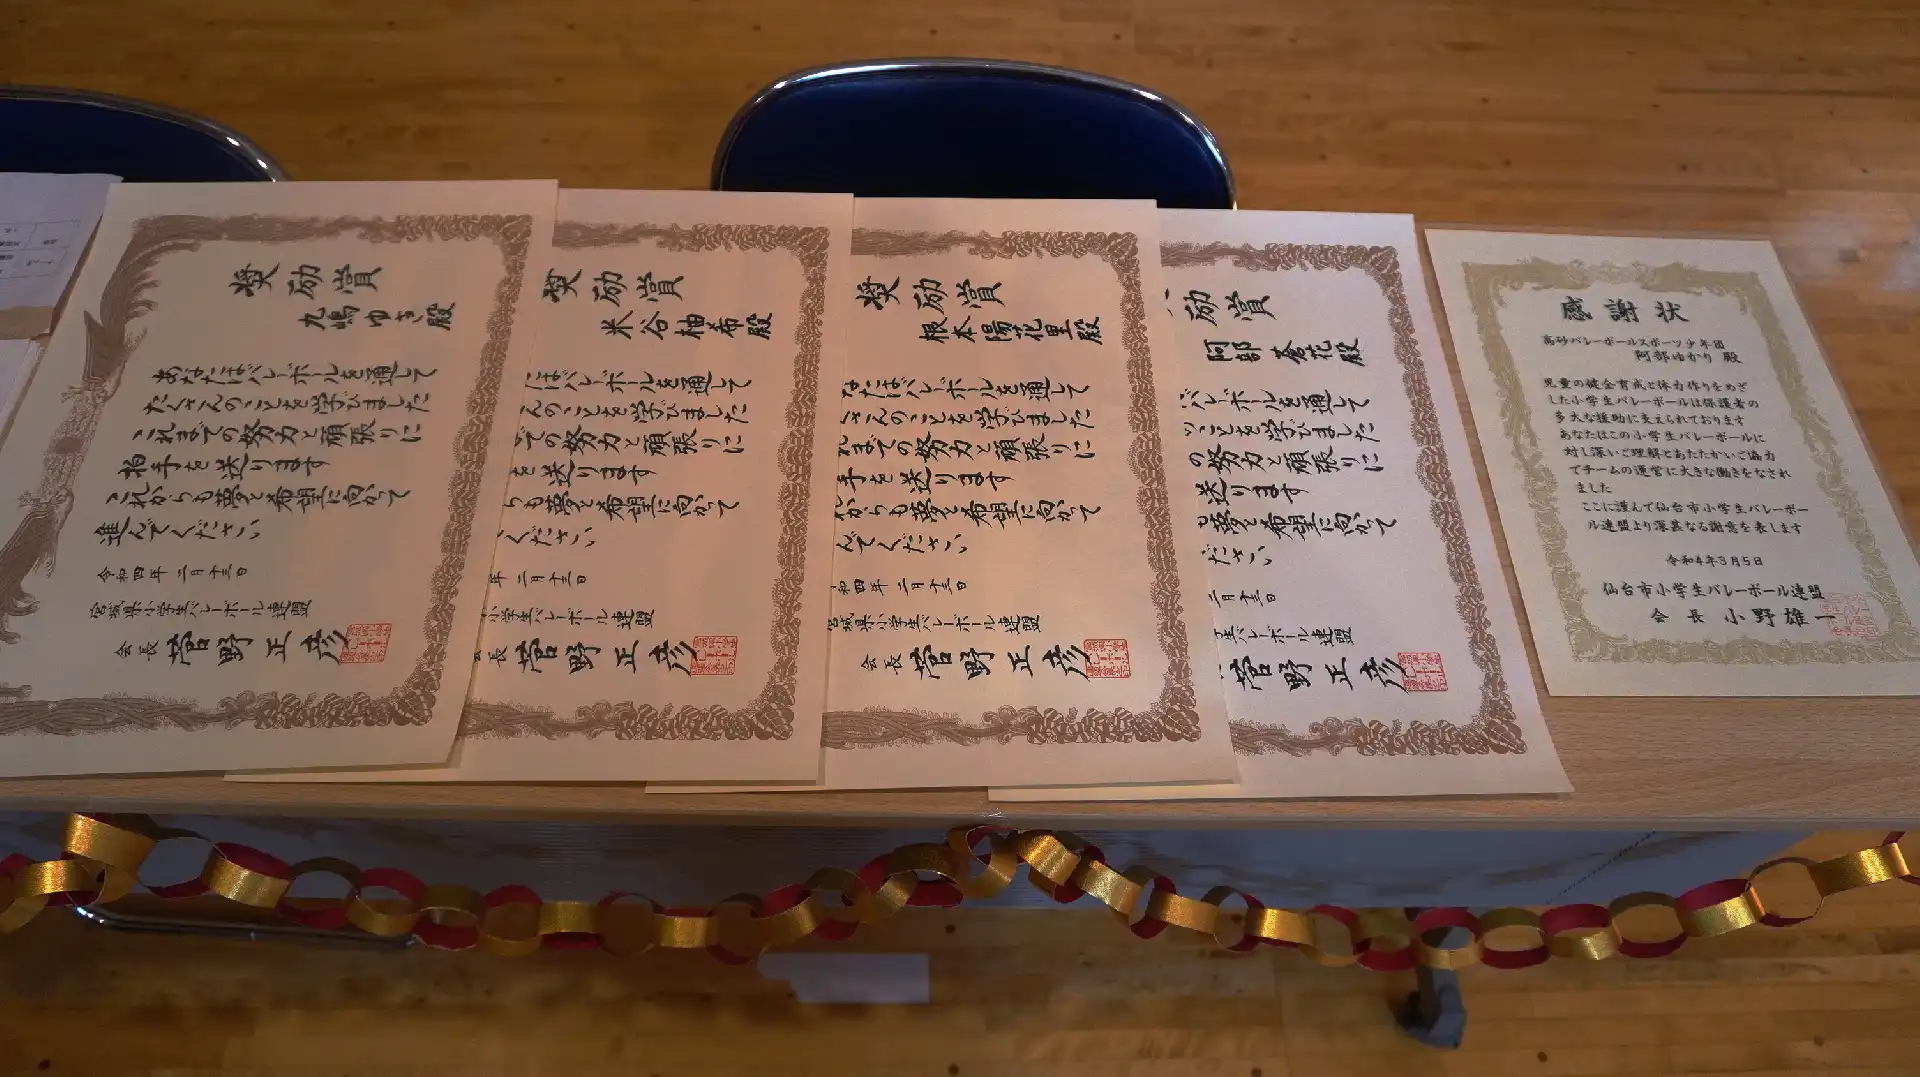 奨励賞
九嶋ゆき殿
あなたはバレーボールを通して
たくさんのことを学びました
これまでの努力と頑張りに
拍手を送ります
これからも夢と希望に向かって
進んでください
令和四年 二月十三日
宮城県小学生バレーボール連盟
会長 菅野正彦
奨励賞
米谷柚希殿
はバレーボールを通して
んのことを学びました
での努力と頑張りに
を送ります
らも夢と希望に向かって
ください
年 二月十三日
小学生バレーボール連盟
長 菅野正彦
奨励賞
根本陽花里殿
なたはバレーボールを通して
さんのことを学びました
れまでの努力と頑張りに
手を送ります
れからも夢と希望に向かって
んでください
和四年 二月十三日
宮城県小学生バレーボール連盟
会長 菅野正彦
励賞
阿部蒼花殿
バレーボールを通して
ことを学びました
の努力と頑張りに
送ります
も夢と希望に向かって
ださい
二月十三日
生バレーボール連盟
菅野正彦
感謝状
高砂バレーボールスポーツ少年団
阿部ゆかり 殿
児童の健全育成と体力作りをめざ
した小学生バレーボールは保護者の
多大な援助に支えられております
あなたはこの小学生バレーボールに
対し深いご理解とあたたかいご協力
でチームの運営に大きな働きをなされ
ました
ここに謹んで仙台市小学生バレーボー
ル連盟より深甚なる謝意を表します
令和4年3月5日
仙台市小学生バレーボール連盟
会長 小野雄一